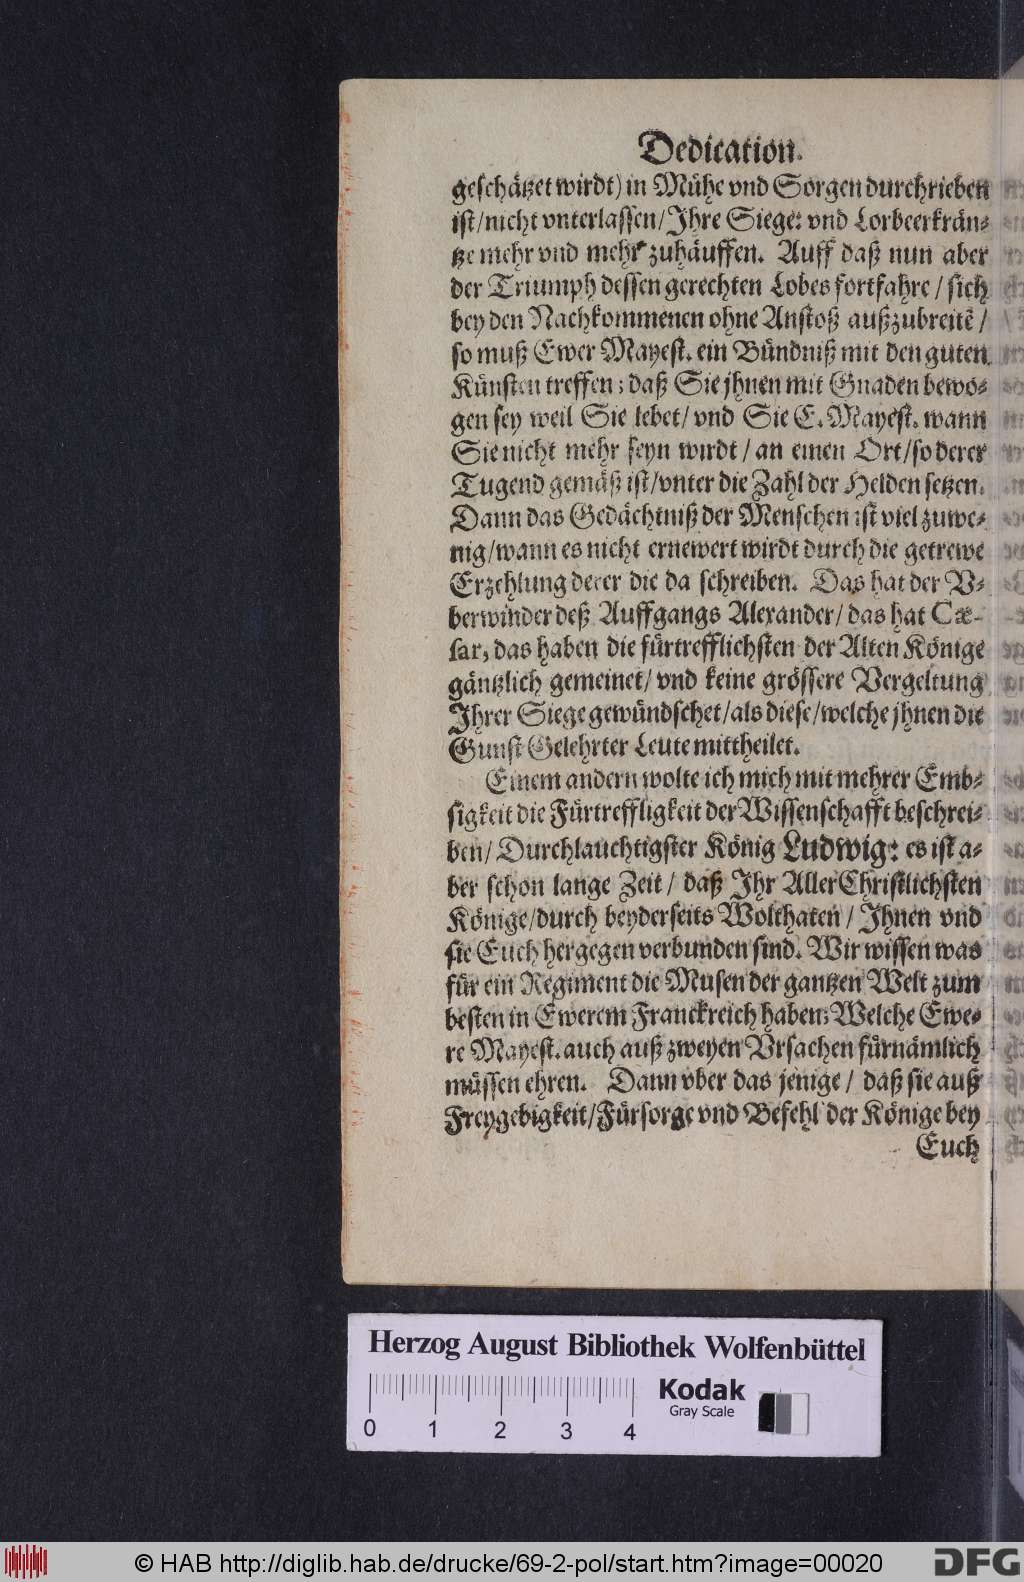 Dedication.
geschätzet wirdt) in Mühe vnd Sorgen durchrieben
ist/nicht vnterlassen/Jhre Siege: vnd Lorbeerkrän-
tze mehr vnd mehr zuhäuffen. Auff daß nun aber
der Triumph dessen gerechten Lobes fortfahre / sich
bey den Nachkommenen ohne Anstoß außzubreitẽ /
so muß Ewer Mayest. ein Bündniß mit den guten
Künsten treffen; daß Sie jhnen mit Gnaden bewo-
gen sey weil Sie lebet/ vnd Sie E. Mayest. wann
Sie nicht mehr seyn wirdt / an einen Ort/so derer
Tugend gemäß ist/vnter die Zahl der Helden setzen.
Dann das Gedächtniß der Menschen ist viel zuwe-
nig/wann es nicht ernewert wirdt durch die getrewe
Erzehlung derer die da schreiben. Das hat der V-
berwinder deß Auffgangs Alexander/ das hat Cæ-
sar, das haben die fürtrefflichsten der Alten Könige
gäntzlich gemeinet/ vnd keine grössere Vergeltung
Jhrer Siege gewündschet/als diese/welche jhnen die
Gunst Gelehrter Leute mittheilet.
Einem andern wolte ich mich mit mehrer Emb-
sigkeit die Fürtreffligkeit der Wissenschafft beschrei-
ben/ Durchlauchtigster König Ludwig: es ist a-
ber schon lange Zeit / daß Jhr AllerChristlichsten
Könige/durch beyderseits Wolthaten / Jhnen vnd
sie Euch hergegen verbunden sind. Wir wissen was
für ein Regiment die Musen der gantzen Welt zum
besten in Ewerem Franckreich haben; Welche Ewe-
re Mayest. auch auß zweyen Vrsachen fürnämlich
müssen ehren. Dann vber das jenige / daß sie auß
Freygebigkeit/Fürsorge vnd Befehl der Könige bey
Euch
Herzog August Bibliothek Wolfenbüttel
Kodak
Gray Scale
0 1 2 3 4
© HAB http://diglib.hab.de/drucke/69-2-pol/start.htm?image=00020
DFG